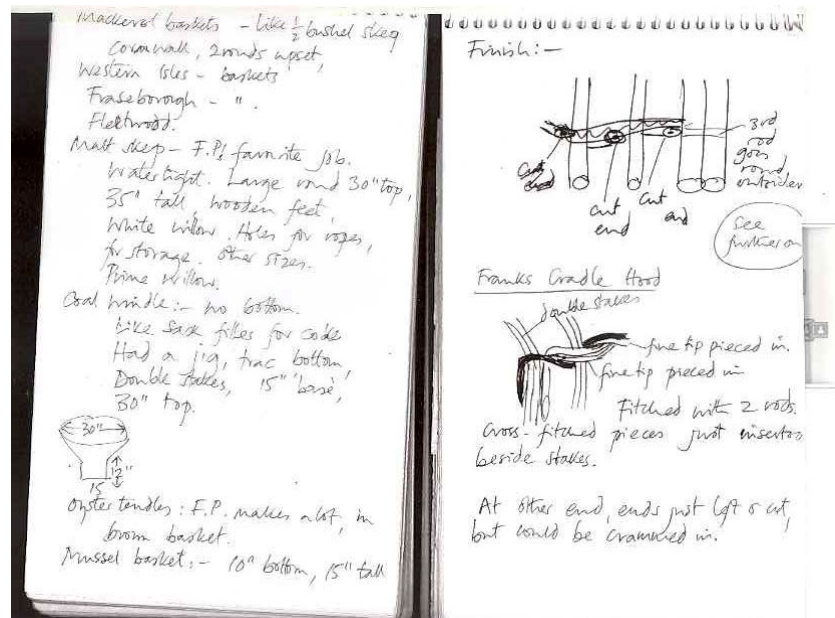 Mackerel baskets - Like ½ bushel skep
Cornwall, 2 rounds upset,
Western Isles - baskets
Fraseborough - ".
Fleetwood.
Malt skep - F.P.'s favorite job.
Watertight. Large round 30" top,
35" tall, wooden feet,
White willow. Holes for ropes,
for storage. Other sizes.
Prime willow.
Coal windle:- no bottom.
Like sack filler for coke
Had a jig, trac bottom,
Double stakes, 15" base,
30" top.
30"
12"
15
Oyster tendles: F.P. makes a lot, in
brown basket.
Mussel basket:- 10" bottom, 15" tall
Finish:-
3rd
rod
goes
round
outside
cut
end
cut
end
cut
end
See
further on
Franks Cradle Hood
double stakes
fine tip pieced in.
fine tip pieced in
Fitched with 2 rods.
Cross-fitched pieces just inserted
beside stakes.
At other end, ends just left or cut,
but could be crammed in.